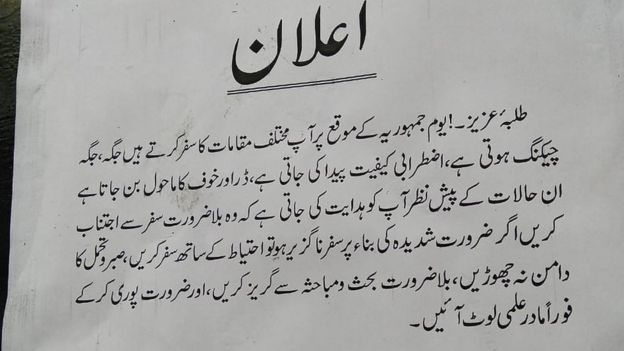 اعلان
طلبۂ عزیز۔! یوم جمہوریہ کے موقع پر آپ مختلف مقامات کا سفر کرتے ہیں جگہ، جگہ
چیکنگ ہوتی ہے، اضطرابی کیفیت پیدا کی جاتی ہے، ڈر اور خوف کا ماحول بن جاتا ہے
ان حالات کے پیش نظر آپ کو ہدایت کی جاتی ہے کہ وہ بلا ضرورت سفر سے اجتناب
کریں اگر ضرورت شدیدہ کی بناء پر سفر ناگزیر ہو تو احتیاط کے ساتھ سفر کریں، صبر و تحمل کا
دامن نہ چھوڑیں، بلا ضرورت بحث و مباحثہ سے گریز کریں، اور ضرورت پوری کر کے
فوراً مادر علمی لوٹ آئیں۔